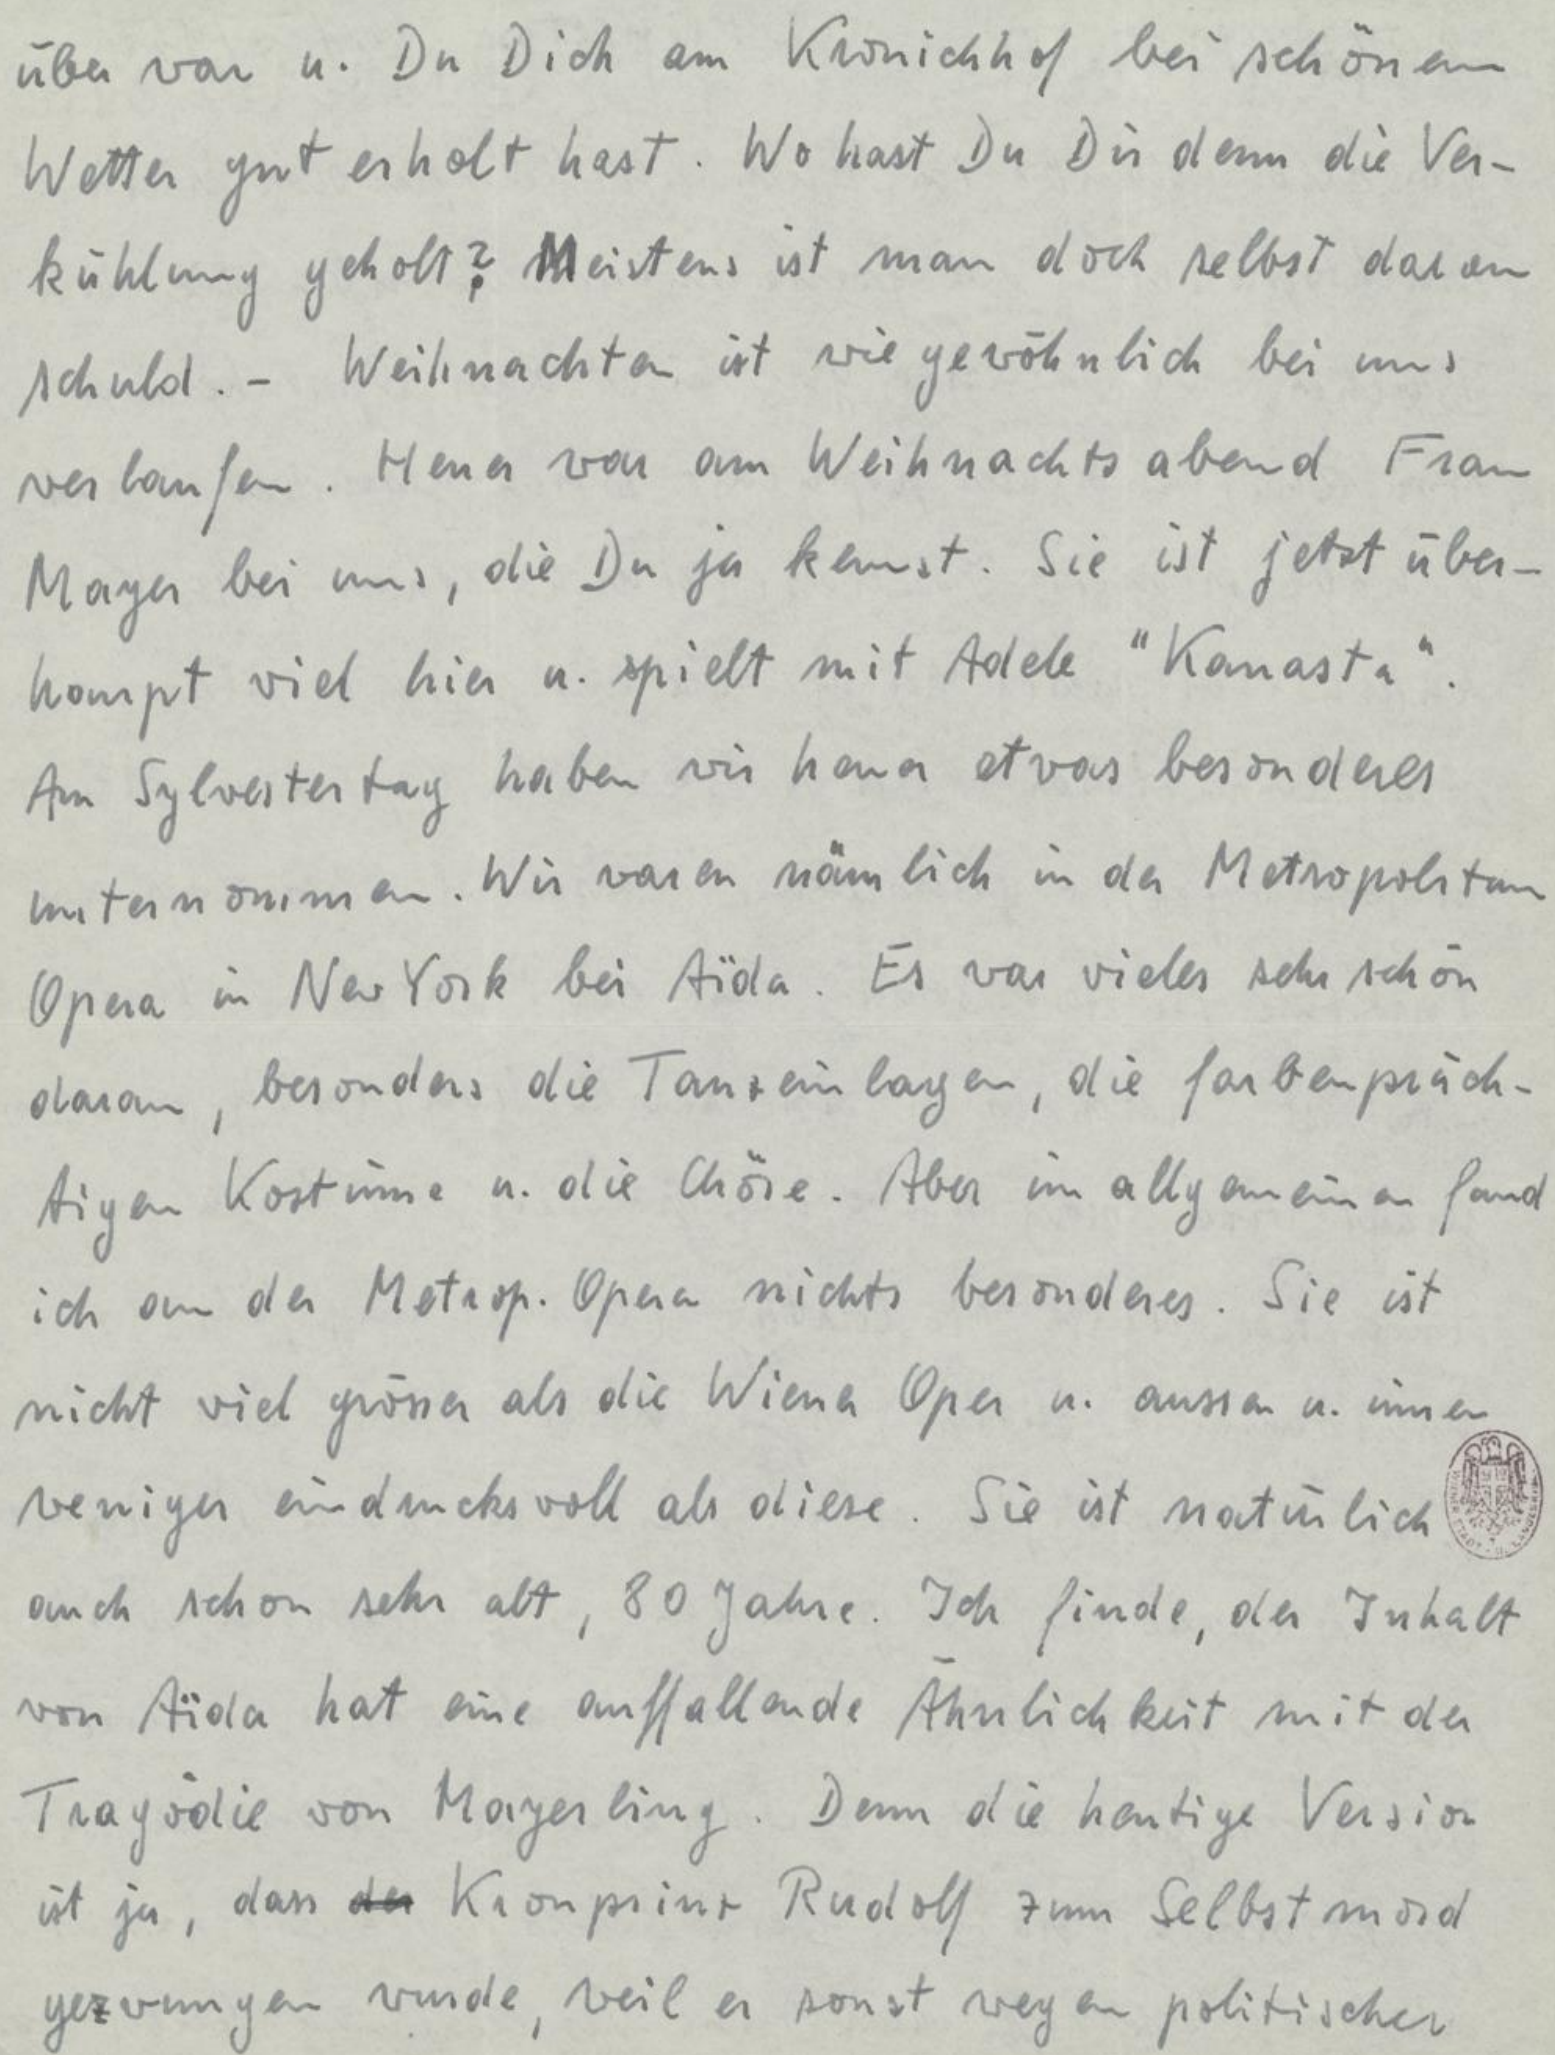 über war u. Du Dich am Kronichhof bei schönem
Wetter gut erholt hast. Wo hast Du Dir denn die Ver-
kühlung geholt? Meistens ist man doch selbst daran
schuld. – Weihnachten ist wie gewöhnlich bei uns
verlaufen. Heuer war am Weihnachtsabend Frau
Mayer bei uns, die Du ja kennst. Sie ist jetzt über-
haupt viel hier u. spielt mit Adele "Kanasta".
Am Sylvestertag haben wir heuer etwas besonderes
unternommen. Wir waren nämlich in der Metropolitan
Opera in New York bei Aïda. Es war vieles sehr schön
daran, besonders die Tanzeinlagen, die farbenpräch-
tigen Kostüme u. die Chöre. Aber im allgemeinen fand
ich an der Metrop. Opera nichts besonderes. Sie ist
nicht viel grösser als die Wiener Oper u. aussen u. innen
weniger eindrucksvoll als diese. Sie ist natürlich
auch schon sehr alt, 80 Jahre. Ich finde, der Inhalt
von Aïda hat eine auffallende Ähnlichkeit mit der
Tragödie von Mayerling. Denn die heutige Version
ist ja, dass der Kronprinz Rudolf zum Selbstmord
gezwungen wurde, weil er sonst wegen politischer